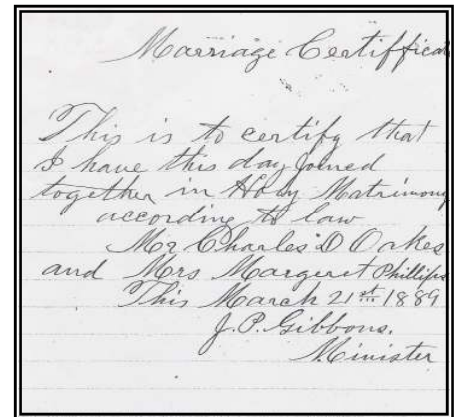 Marriage Certifficat
This is to certify that
I have this day Joined
together in Holy Matrimony
according to law
Mr Charles D Oakes
and Mrs Margeret Phillips
This March 21st 1889
J. P. Gibbons.
Minister